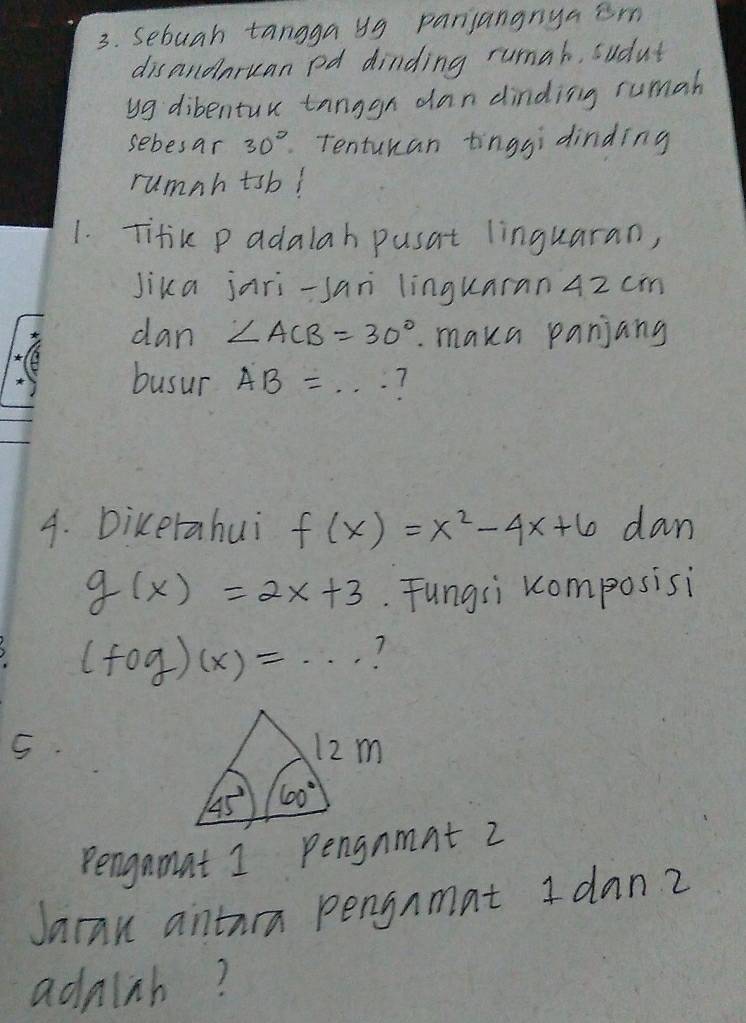 3. Sebuah tangga yg panjangnya 8m
disandarkan pd dinding rumah. Sudut
yg dibentuk tangga dan dinding rumah
sebesar 30°. Tentukan tinggi dinding
rumah tsb!
1. Titik P adalah pusat lingkaran,
Jika jari-jari lingkaran 42 cm
dan ∠ACB = 30°. maka panjang
busur AB = ...?
4. Diketahui f(x) = x² - 4x + 6 dan
g(x) = 2x + 3. Fungsi komposisi
(fog)(x) = ....?
5.
12 m
45° 60°
Pengamat 1 Pengamat 2
Jarak antara pengamat 1 dan 2
adalah ?